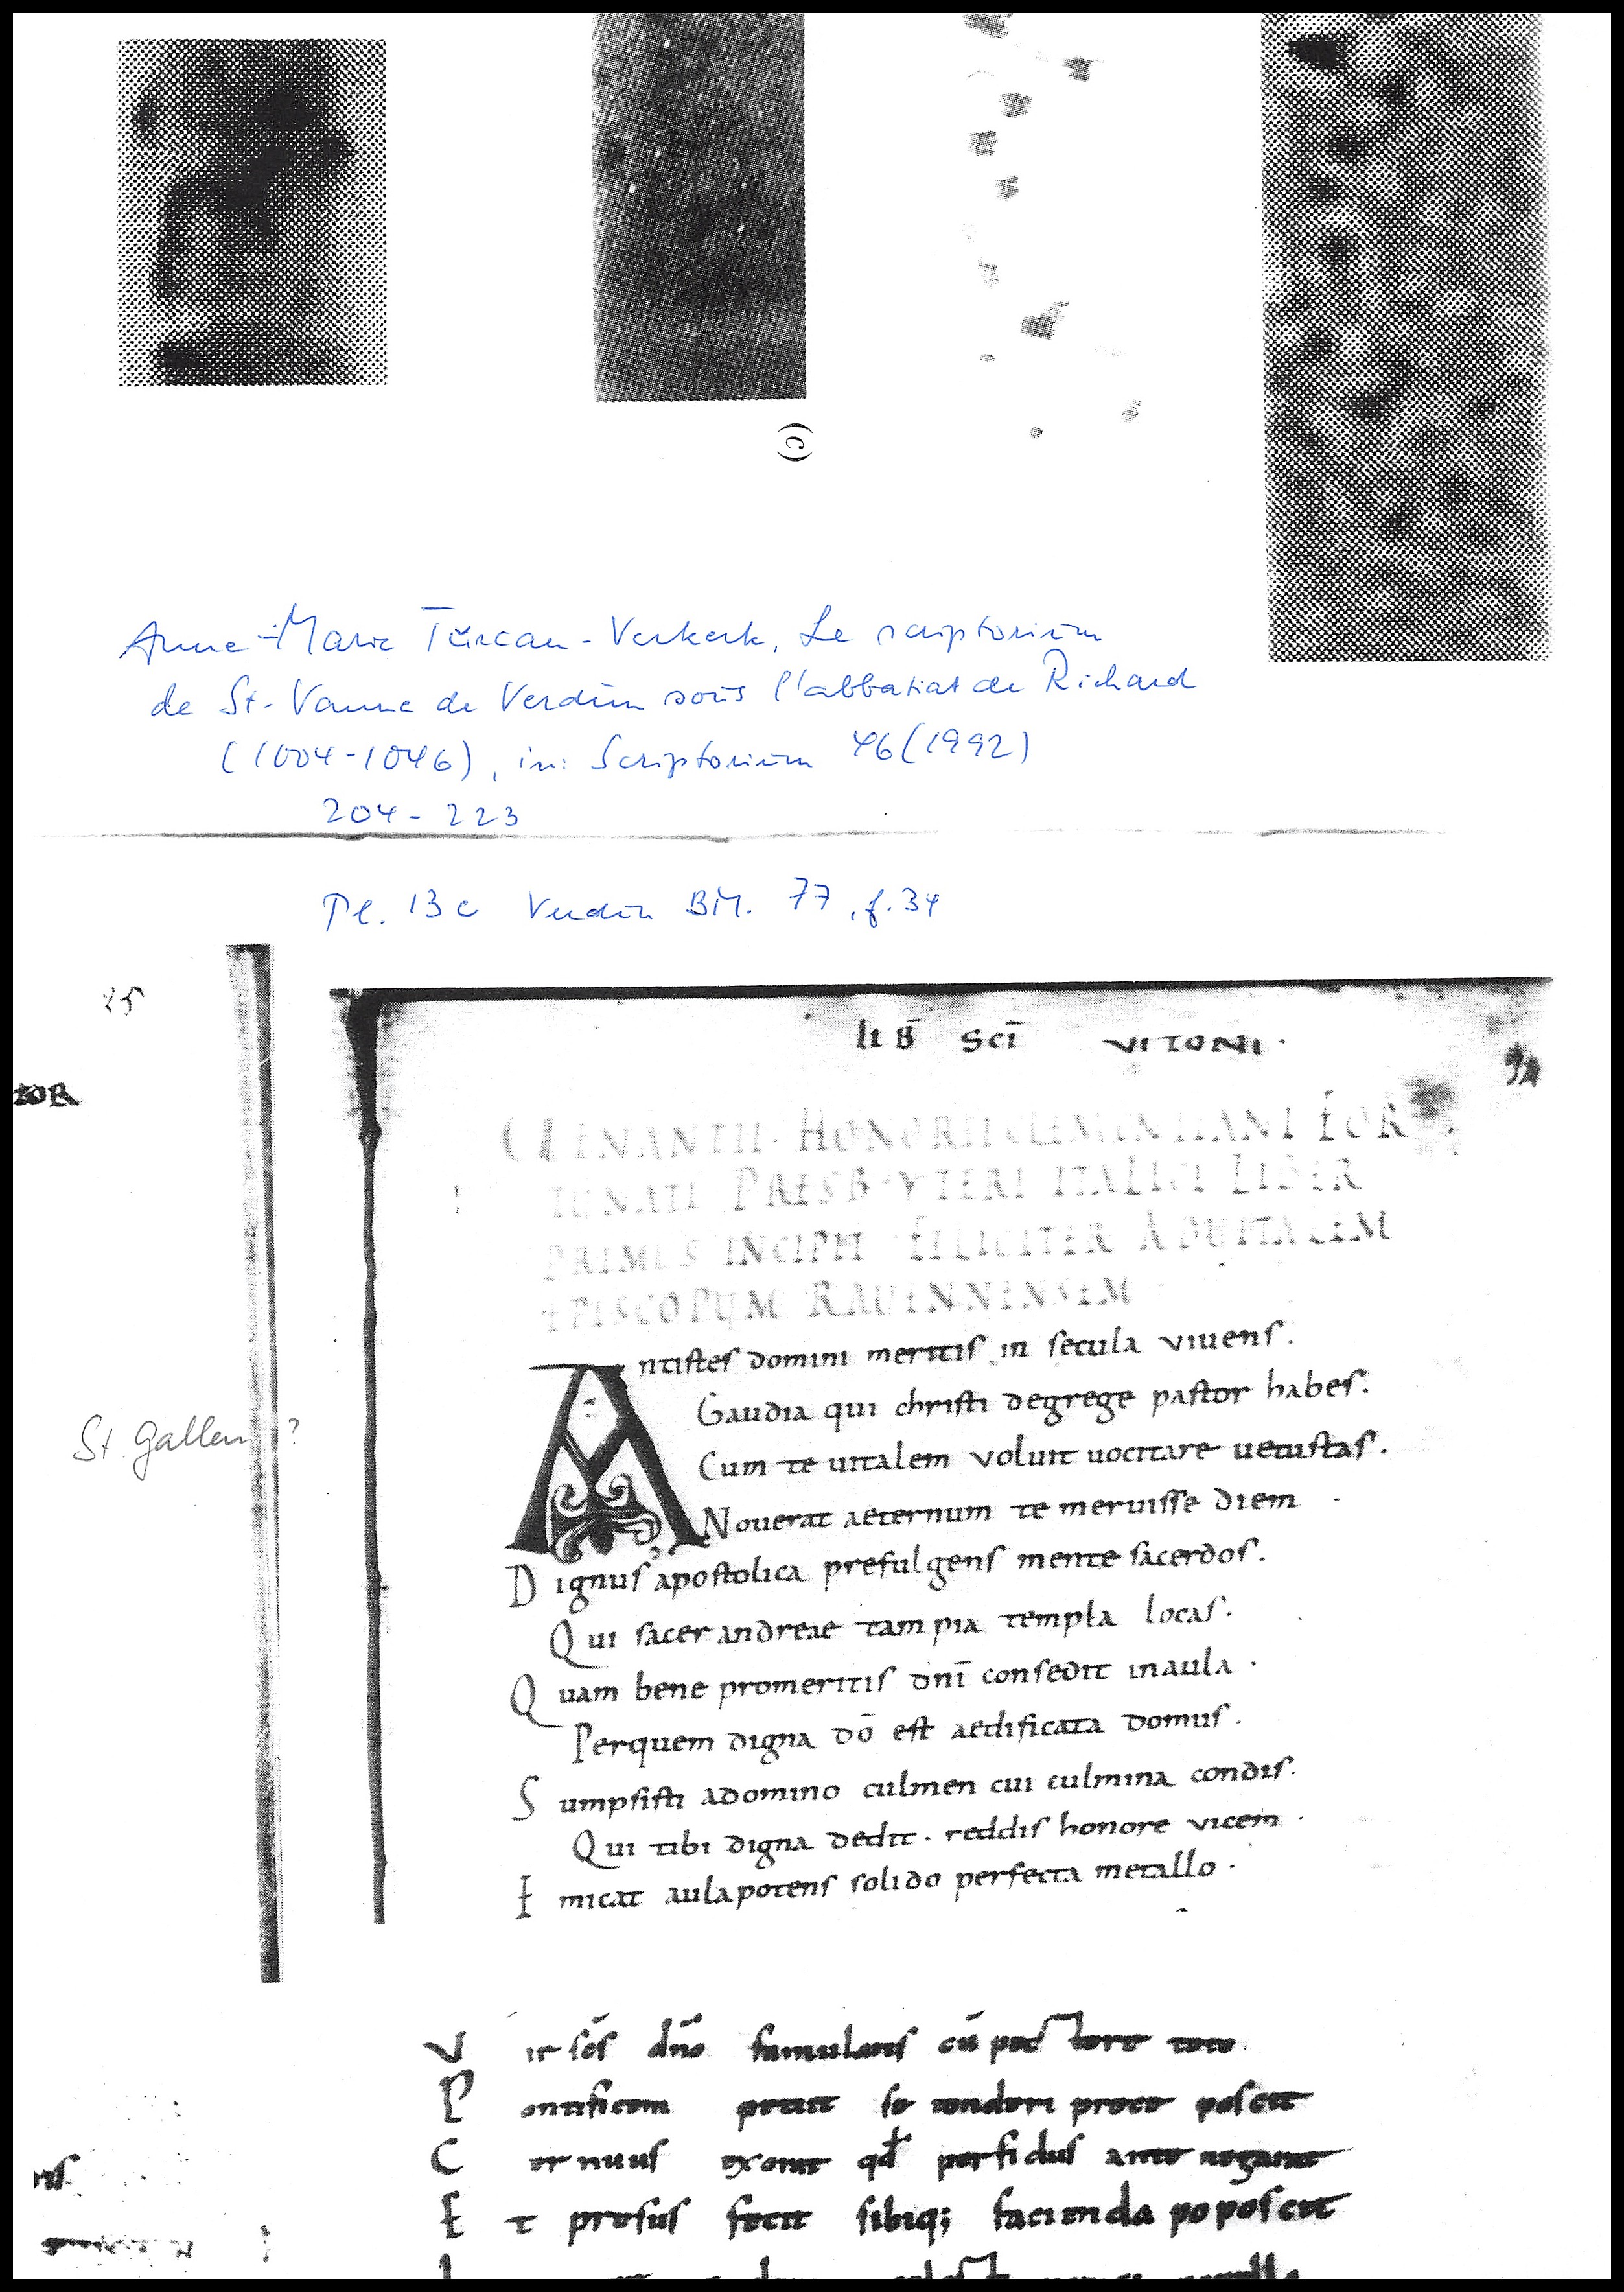 (c)
Anne-Marie Turcan-Verkerk, Le scriptorium
de St-Vanne de Verdun sous l'abbatiat de Richard
(1004-1046), in: Scriptorium 46 (1992)
204-223
Pl. 13c Verdun BM. 77, f. 34
25
lib̄ sc̄i VITONI.
TOR
HONORII CLEMENTIANI FOR
TUNATI PRESBYTERI ITALICI LIBER
PRIMUS INCIPIT FELICITER AD UITALEM
EPISCOPUM RAUENNENSEM
Antistes domini meritis in secula viuens.
Gaudia qui christi degrege pastor habes.
Cum te uitalem voluit uocitare uetustas.
St. Gallen ?
Nouerat aeternum te meruisse diem
Dignus apostolica prefulgens mente sacerdos.
Qui sacer andreae tam pia templa locas.
Quam bene promeritis dn̄i consedit inaula.
Perquem digna dō est aedificata domus.
Sumpsisti adomino culmen cui culmina condis.
Qui tibi digna dedit. reddis honore vicem.
Emicat aulapotens solido perfecta metallo.
Vir sc̄s dn̄o famulans cū pectore toto.
Pontificem petiit se tonderi prece poscit
Cernuus exorat qđ perfidus ante negarat
Et prosus fecit sibiq; facienda poposcit